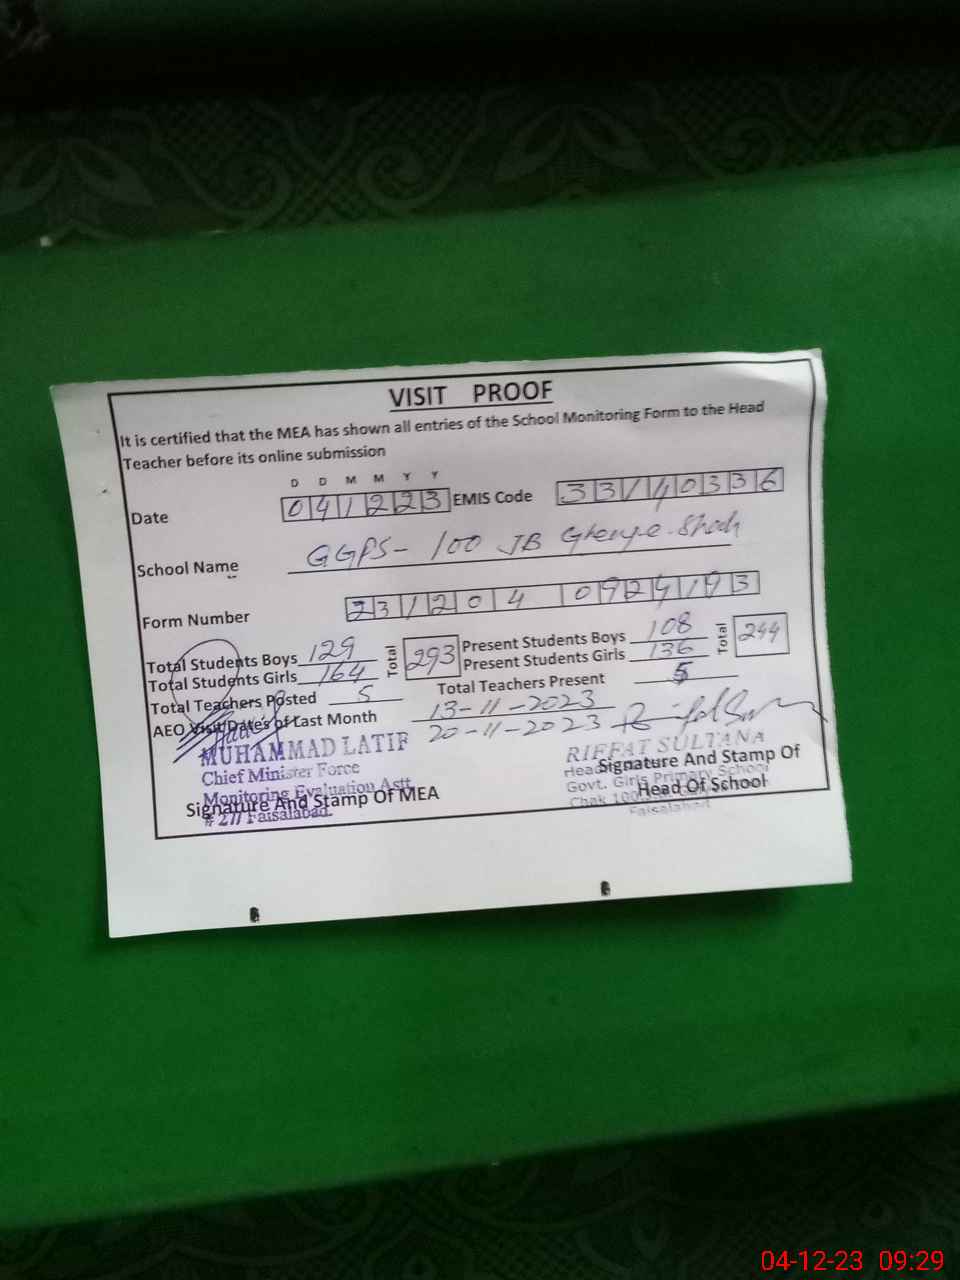 VISIT PROOF
It is certified that the MEA has shown all entries of the School Monitoring Form to the Head
Teacher before its online submission
D D M M Y Y
Date 041223 EMIS Code 33140336
School Name GGPS- 100 JB
Form Number 231204 0924193
Total Students Boys 129 Total 293 Present Students Boys 108 Total 244
Total Students Girls 164 Present Students Girls 136
Total Teachers Posted 5 Total Teachers Present 5
AEO Visit Dates of Last Month 13-11-2023
20-11-2023
MUHAMMAD LATIF
Chief Minister Force
Monitoring Evaluation Astt
# 277 Faisalabad.
Signature And Stamp Of MEA
RIFFAT SULTANA
Govt. Girls Primary School
Chak 100
Faisalabad
Signature And Stamp Of
Head Of School
04-12-23 09:29